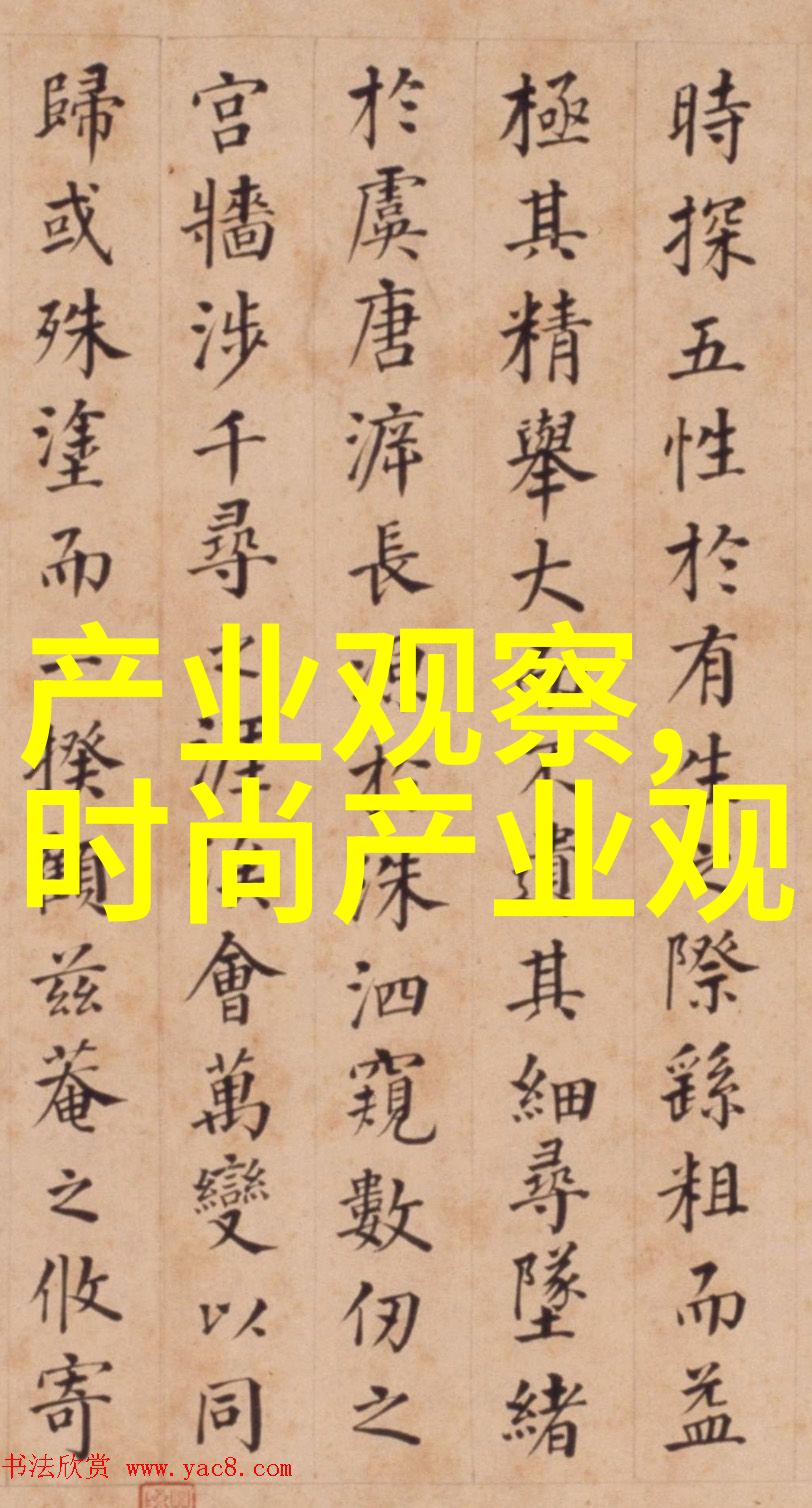 時探五性於有生之際繇粗而益
極其精舉大不遺其細尋墜緒
於虞唐長源於洙泗窺數仞之
宮牆涉千尋之涯涘會萬變以同
歸或殊塗而一揆顧兹菴之攸寄
产业观察,
时尚产业观
书法欣赏 www.yac8.com